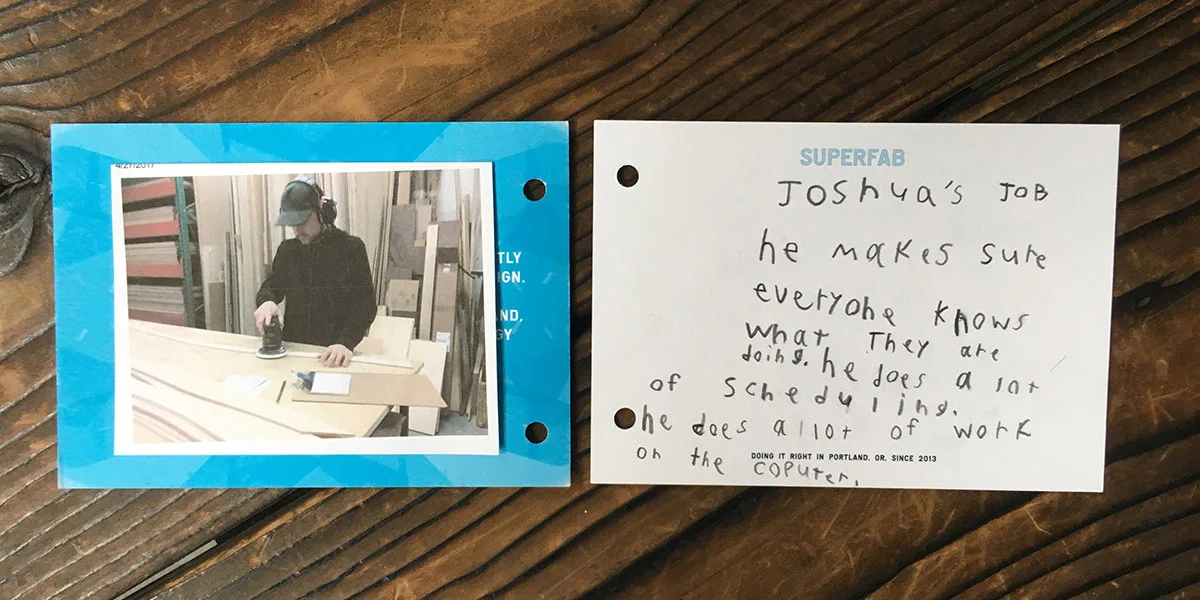 4/27/2017
TLY
IGN.
ND,
GY
SUPERFAB
Joshua's JOB
he makes sure
everyone knows
what They are
doing. he does a lot
of scheduling.
he does allot of work
DOING IT RIGHT IN PORTLAND, OR, SINCE 2013
on the coputer.